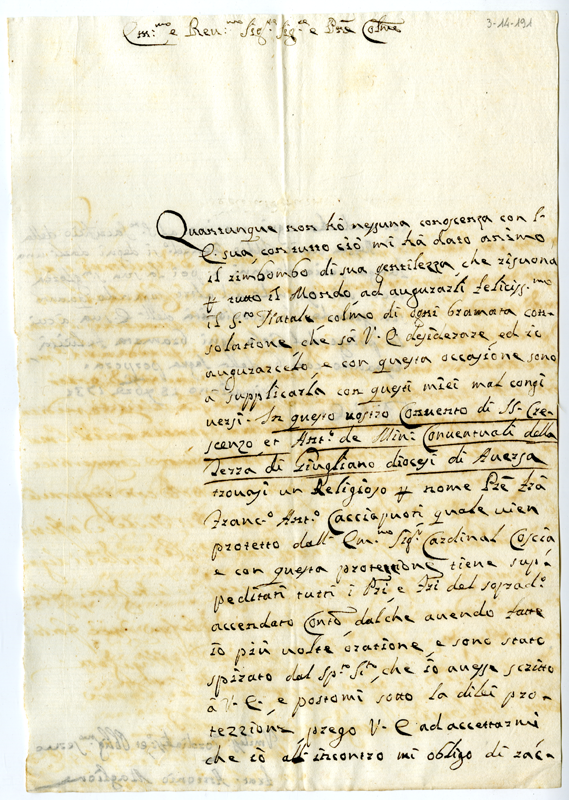 3-14-191
Em:mo e Reu:mo Sig:re Sig:re e Prẽ Colmo
Quantunque non hò nessuna conoscenza con l'
E sua con tutto ciò mi hà dato animo
il rimbombo di sua gentilezza, che risuona
ꝑ tutto il Mondo, ad augurarli feliciss:mo
il S:to Natale colmo di ogni bramata con-
solatione che sà V. E desiderare, ed io
augurarcelo, e con questa occasione sono
a supplicarla con questi miei mal congi
uersi. In questo nostro Conuento di SS. Cre-
scenzo, et Ant:o de Min: Conuentuali della
Terra di Giugliano diocesi di Auersa
trouasi un Religioso ꝑ nome Prẽ Frà
Franc:o Ant:o Cacciapuoti quale uien
protetto dall' Em:mo Sig:r Cardinal Coscia
e con questa protezzione tiene sup-
peditati tutti i Pri, e Fri del soprad:o
accendato Conto, dal che auendo fatte
iò più uolte oratione, e sono stato
spirato dal Sp:to S:to, che iò auesse scritto
à V. E., e postomi sotto la di lei pro-
tezzione, prego V. E ad accettarmi
che iò all' incontro mi obligo di